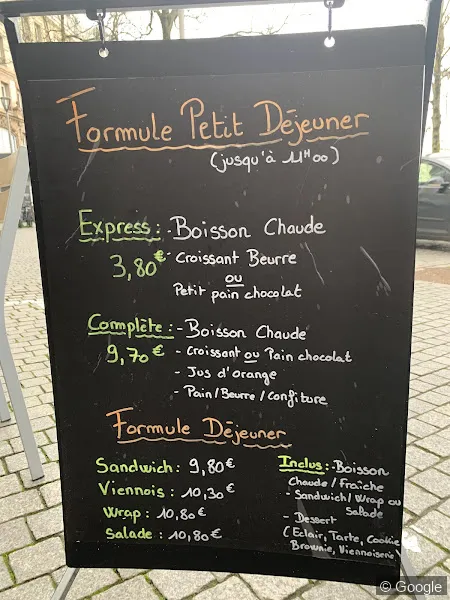 Formule Petit Déjeuner
(jusqu'à 11H00)
Express : - Boisson Chaude
3,80€ - Croissant Beurre
ou
Petit pain chocolat
Complète : - Boisson Chaude
9,70€ - Croissant ou Pain chocolat
- Jus d'orange
- Pain / Beurre / Confiture
Formule Déjeuner
Sandwich : 9,80€
Viennois : 10,30€
Wrap : 10,80€
Salade : 10,80€
Inclus : - Boisson
Chaude / Fraîche
- Sandwich / Wrap ou
Salade
- Dessert
(Eclair, Tarte, Cookie
Brownie, Viennoiserie)
© Google